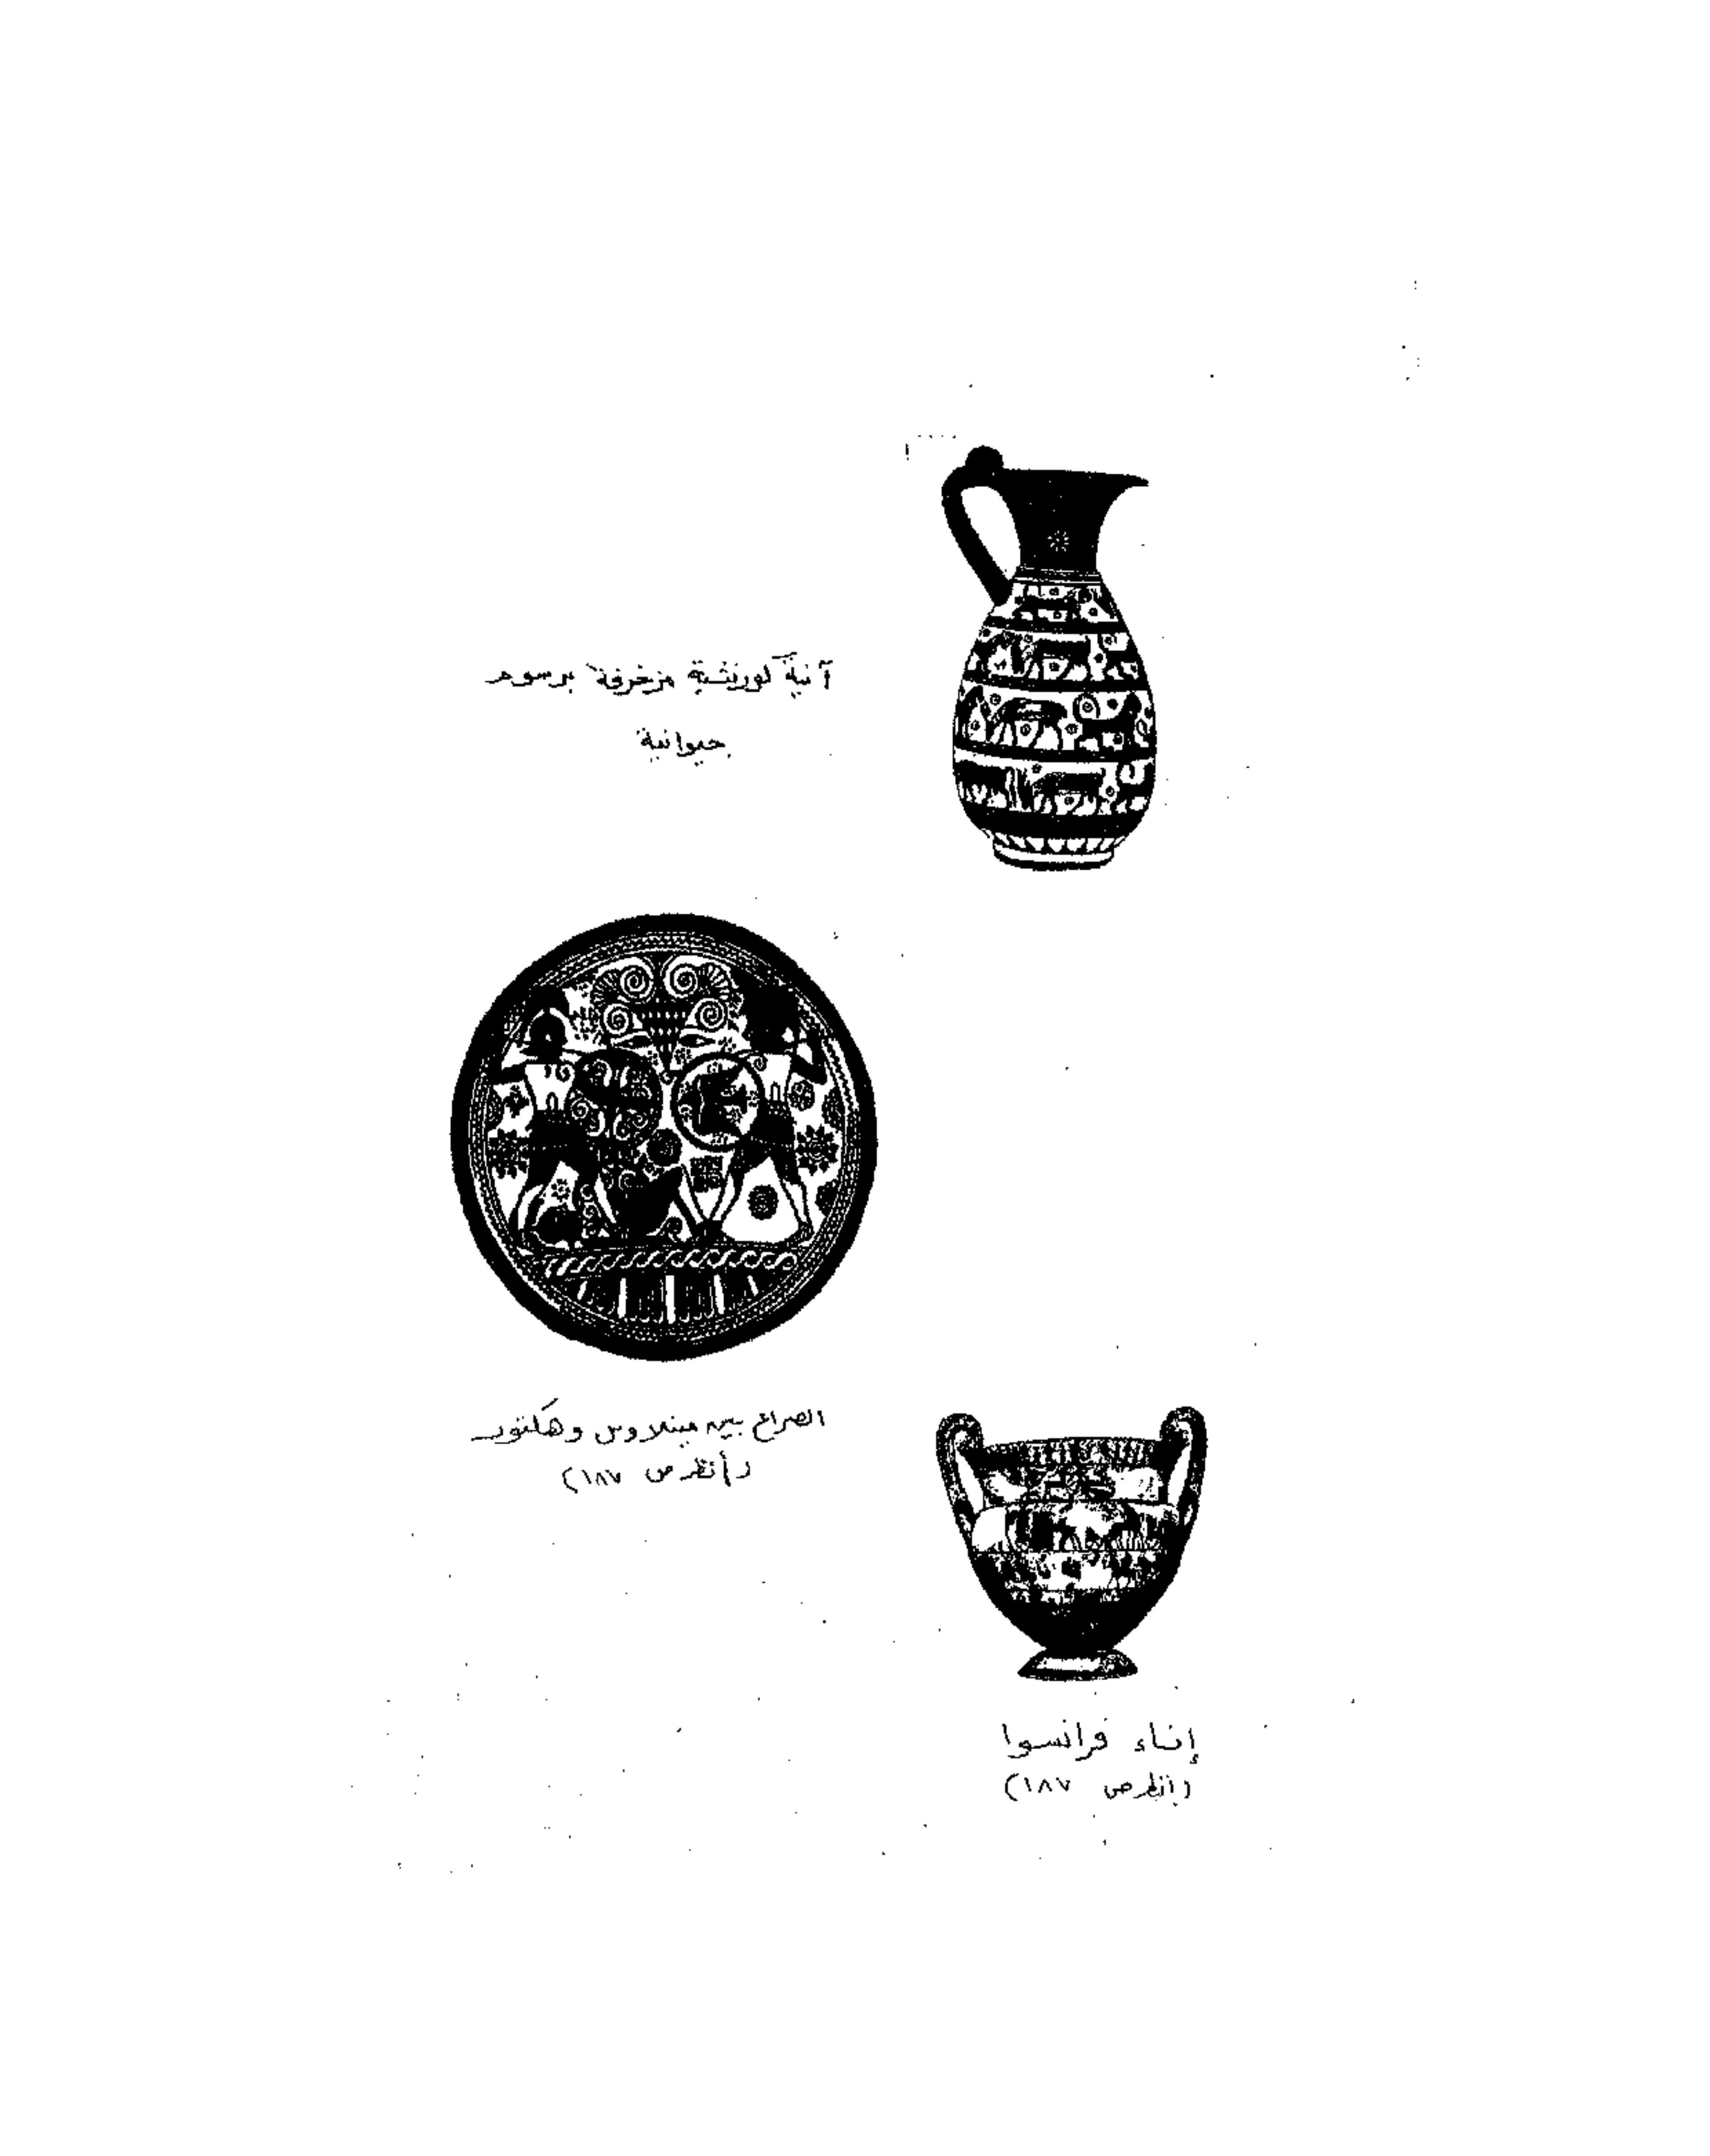 آنية كورنثية مزخرفة برسوم
حيوانية
الصراع بين مينلاوس وهكتور
(أنظر ص ١٨٧)
إناء فرانسوا
(أنظر ص ١٨٧)